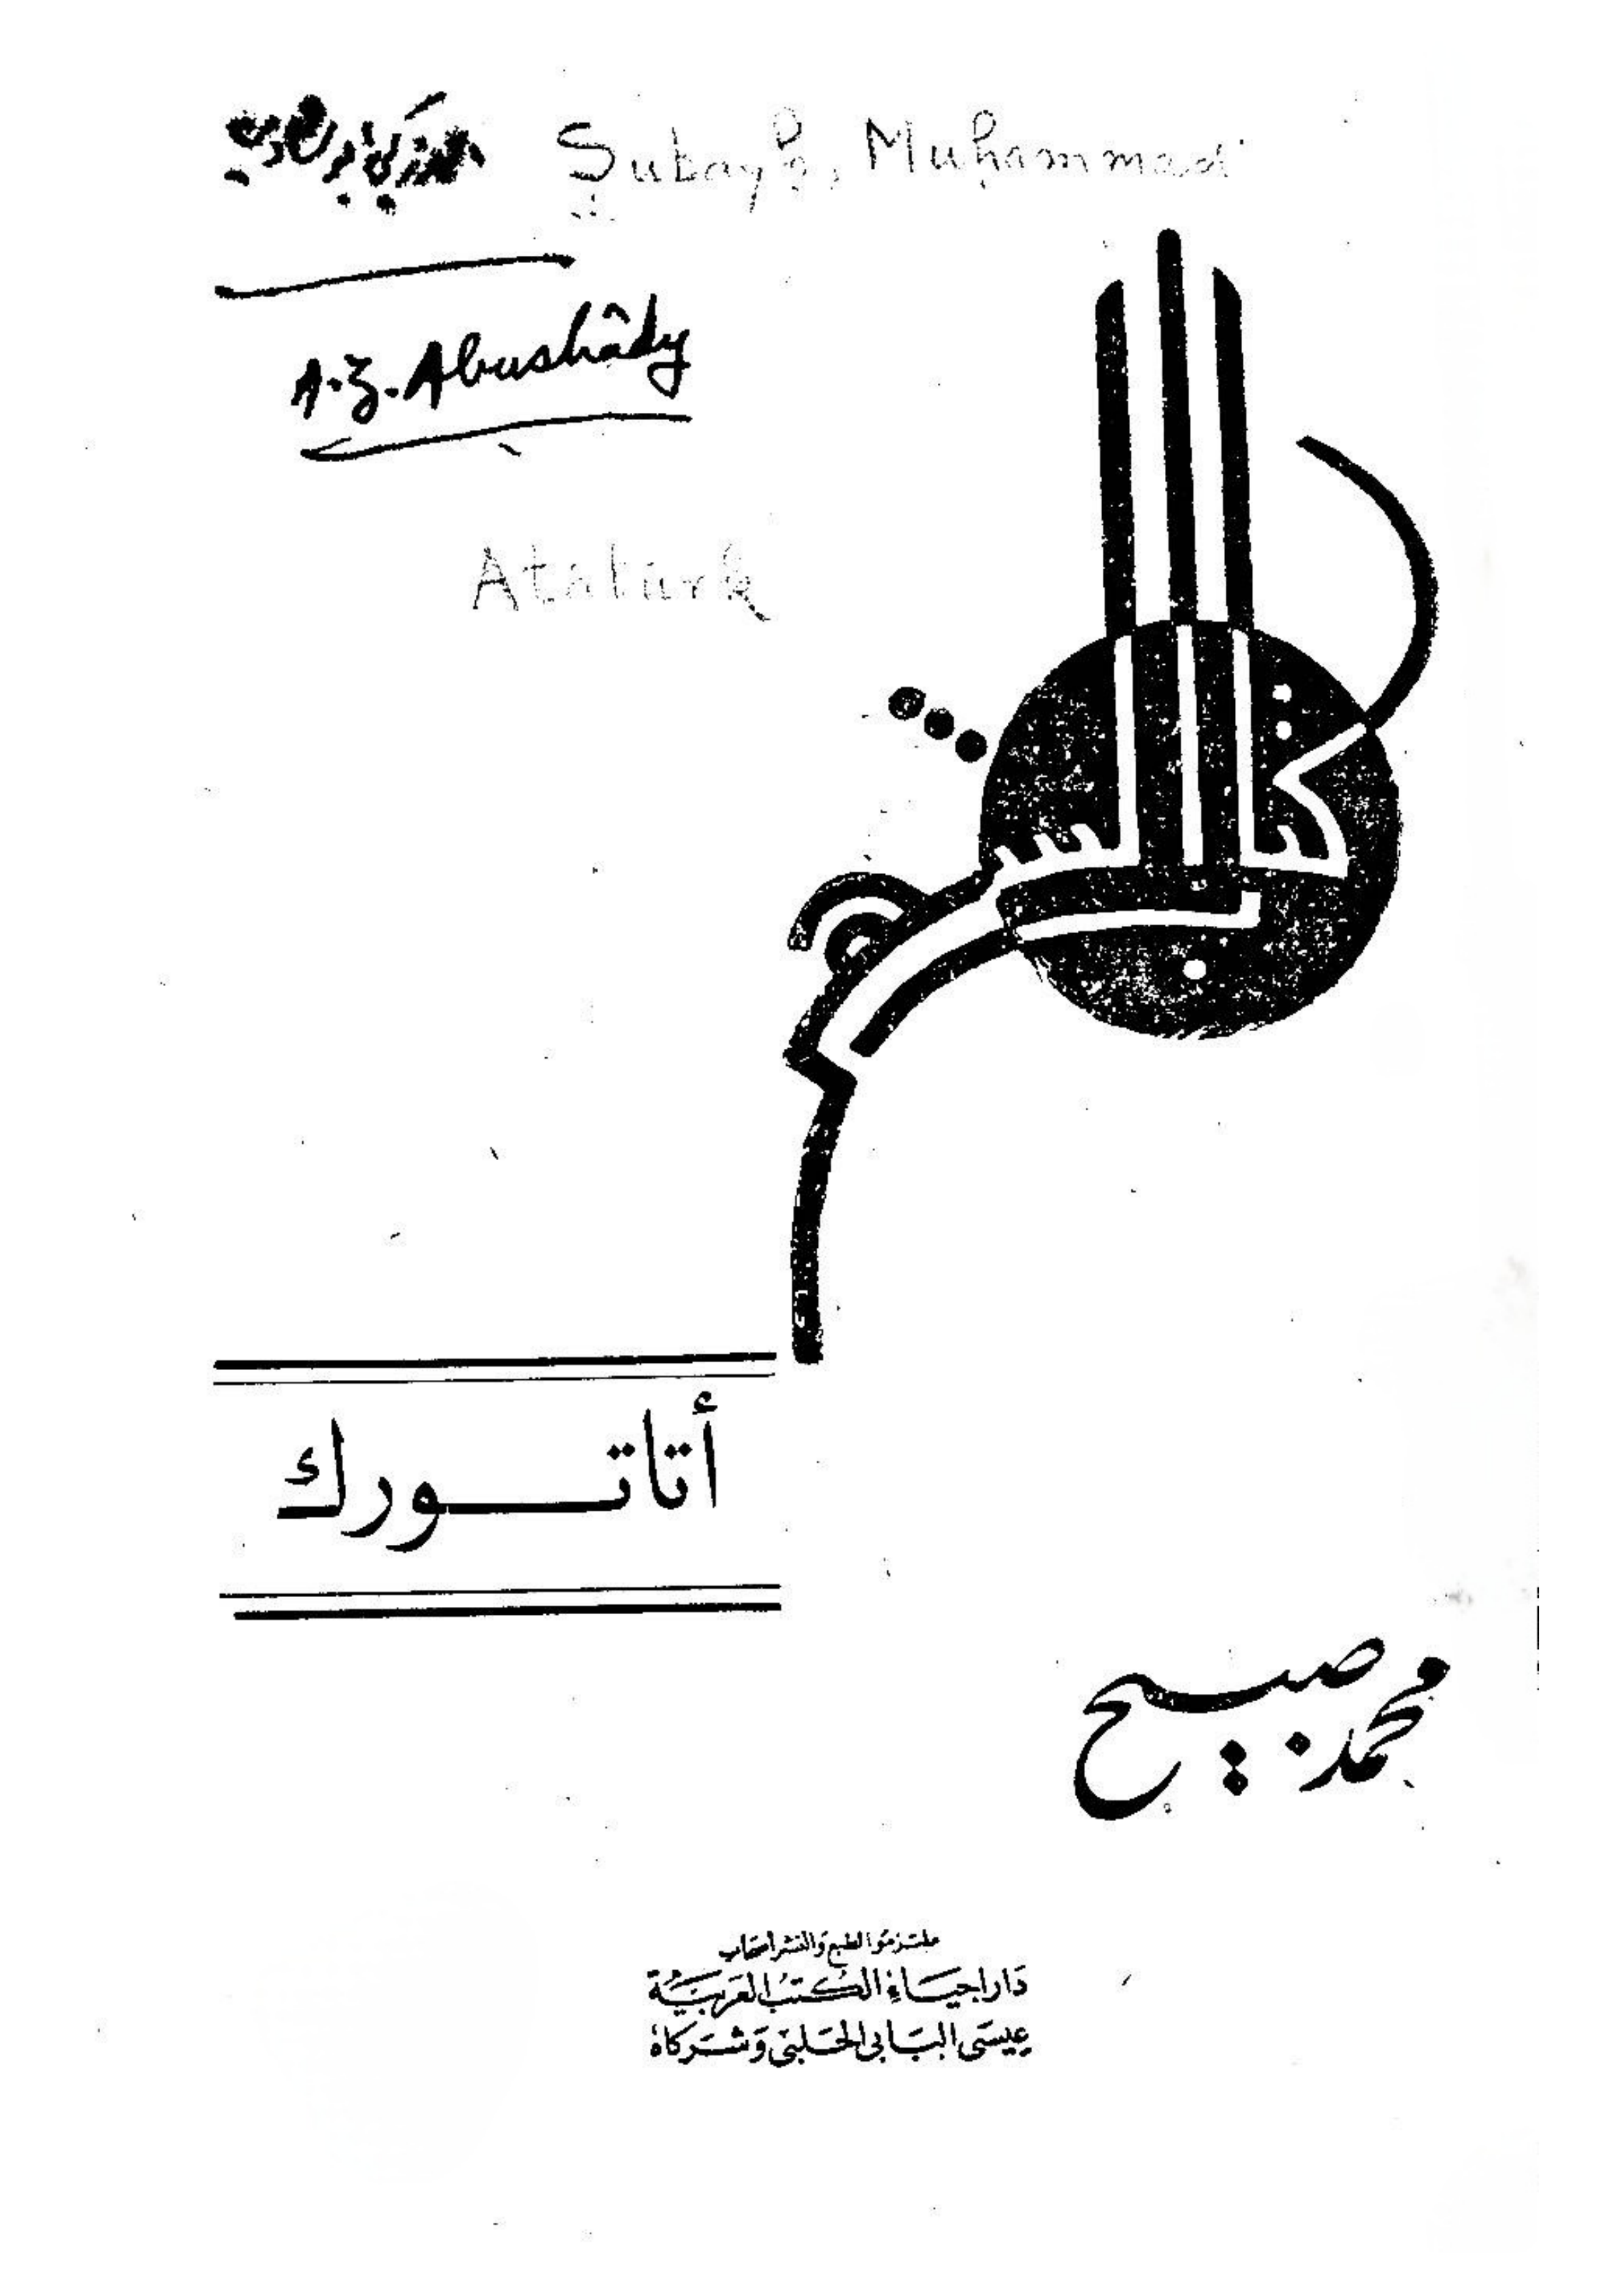 Subayh, Muḥammad
A.Z. Abushâdy
Atatürk
أتاتورك
محمد صبيح
ملتزمو الطبع والنشر أصحاب
دَار إحيَاء الكُتبُ العَرَبيَّة
عيسَى البَابى الحَلبى وَشركَاهُ